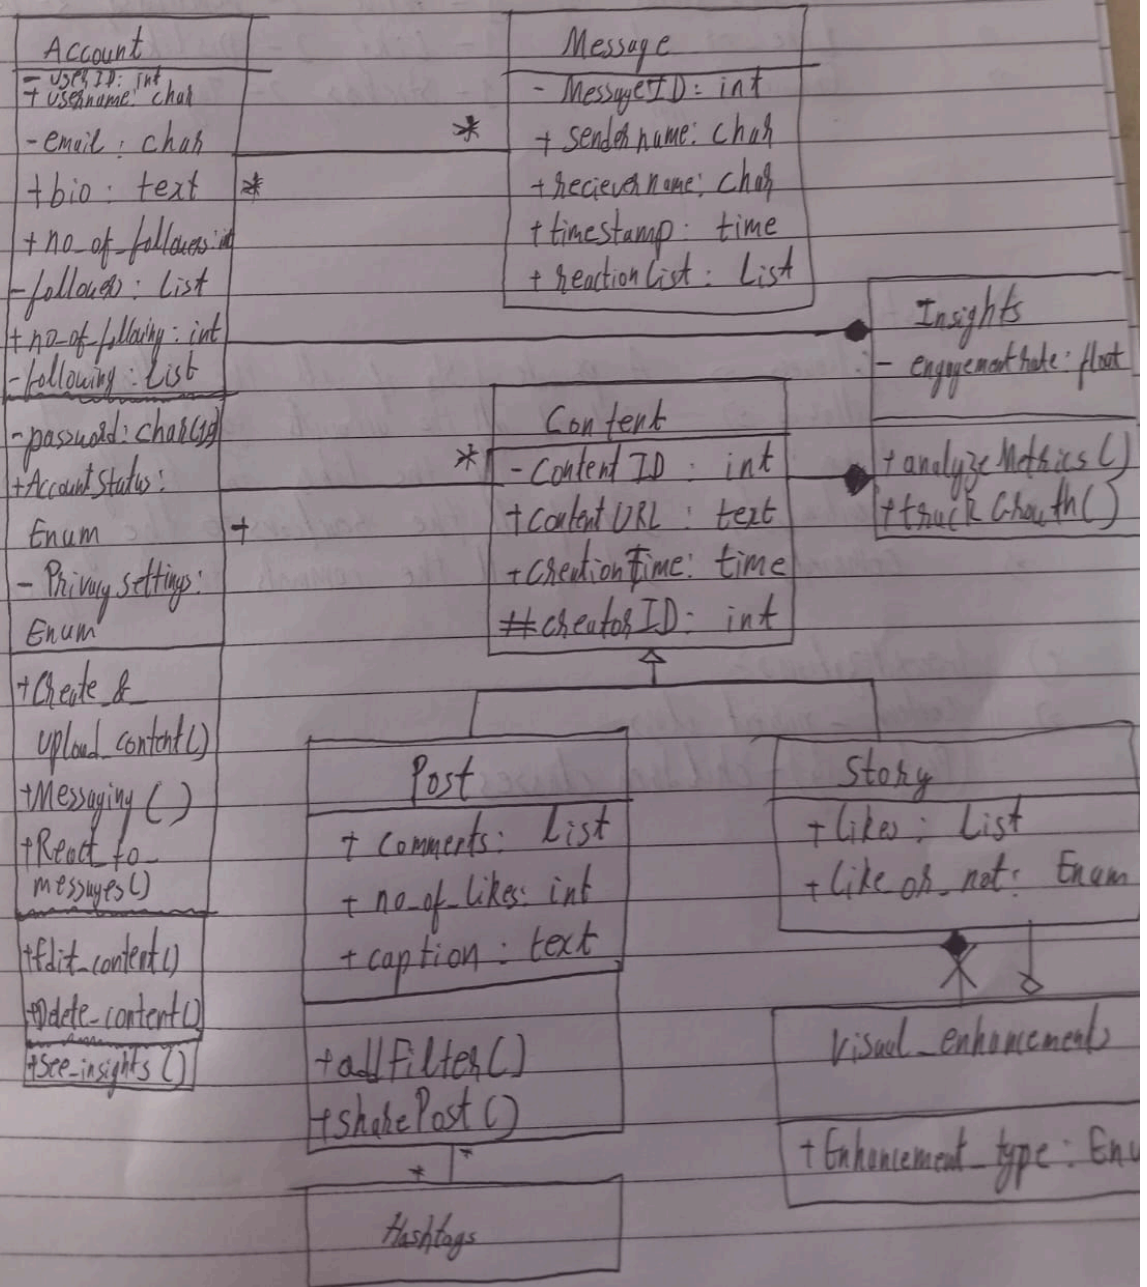 Account
- userID: int
+ username: char
- email: char
+ bio: text
+ no_of_followers: int
- followers: List
+ no_of_following: int
- following: List
- password: char(19)
+ Account Status:
Enum
- Privacy settings:
Enum
+ Create &
upload_content()
+ Messaging ()
+ React_to_
messages()
+ Edit_content()
+ Delete_content()
+ see_insights ()
*
*
+
*
Message
- MessageID: int
+ sendername: char
+ recievername: char
+ timestamp: time
+ reactionList: List
Insights
- engagementrate: float
+ analyzeMetrics()
+ track Growth()
Content
- Content ID: int
+ ContentURL: text
+ CreationTime: time
# creatorID: int
Post
+ Comments: List
+ no_of_likes: int
+ caption: text
+ addFilter()
+ sharePost()
* *
Hashtags
Story
+ likes: List
+ like or_not: Enum
Visual_enhancements
+ Enhancement_type: Enu